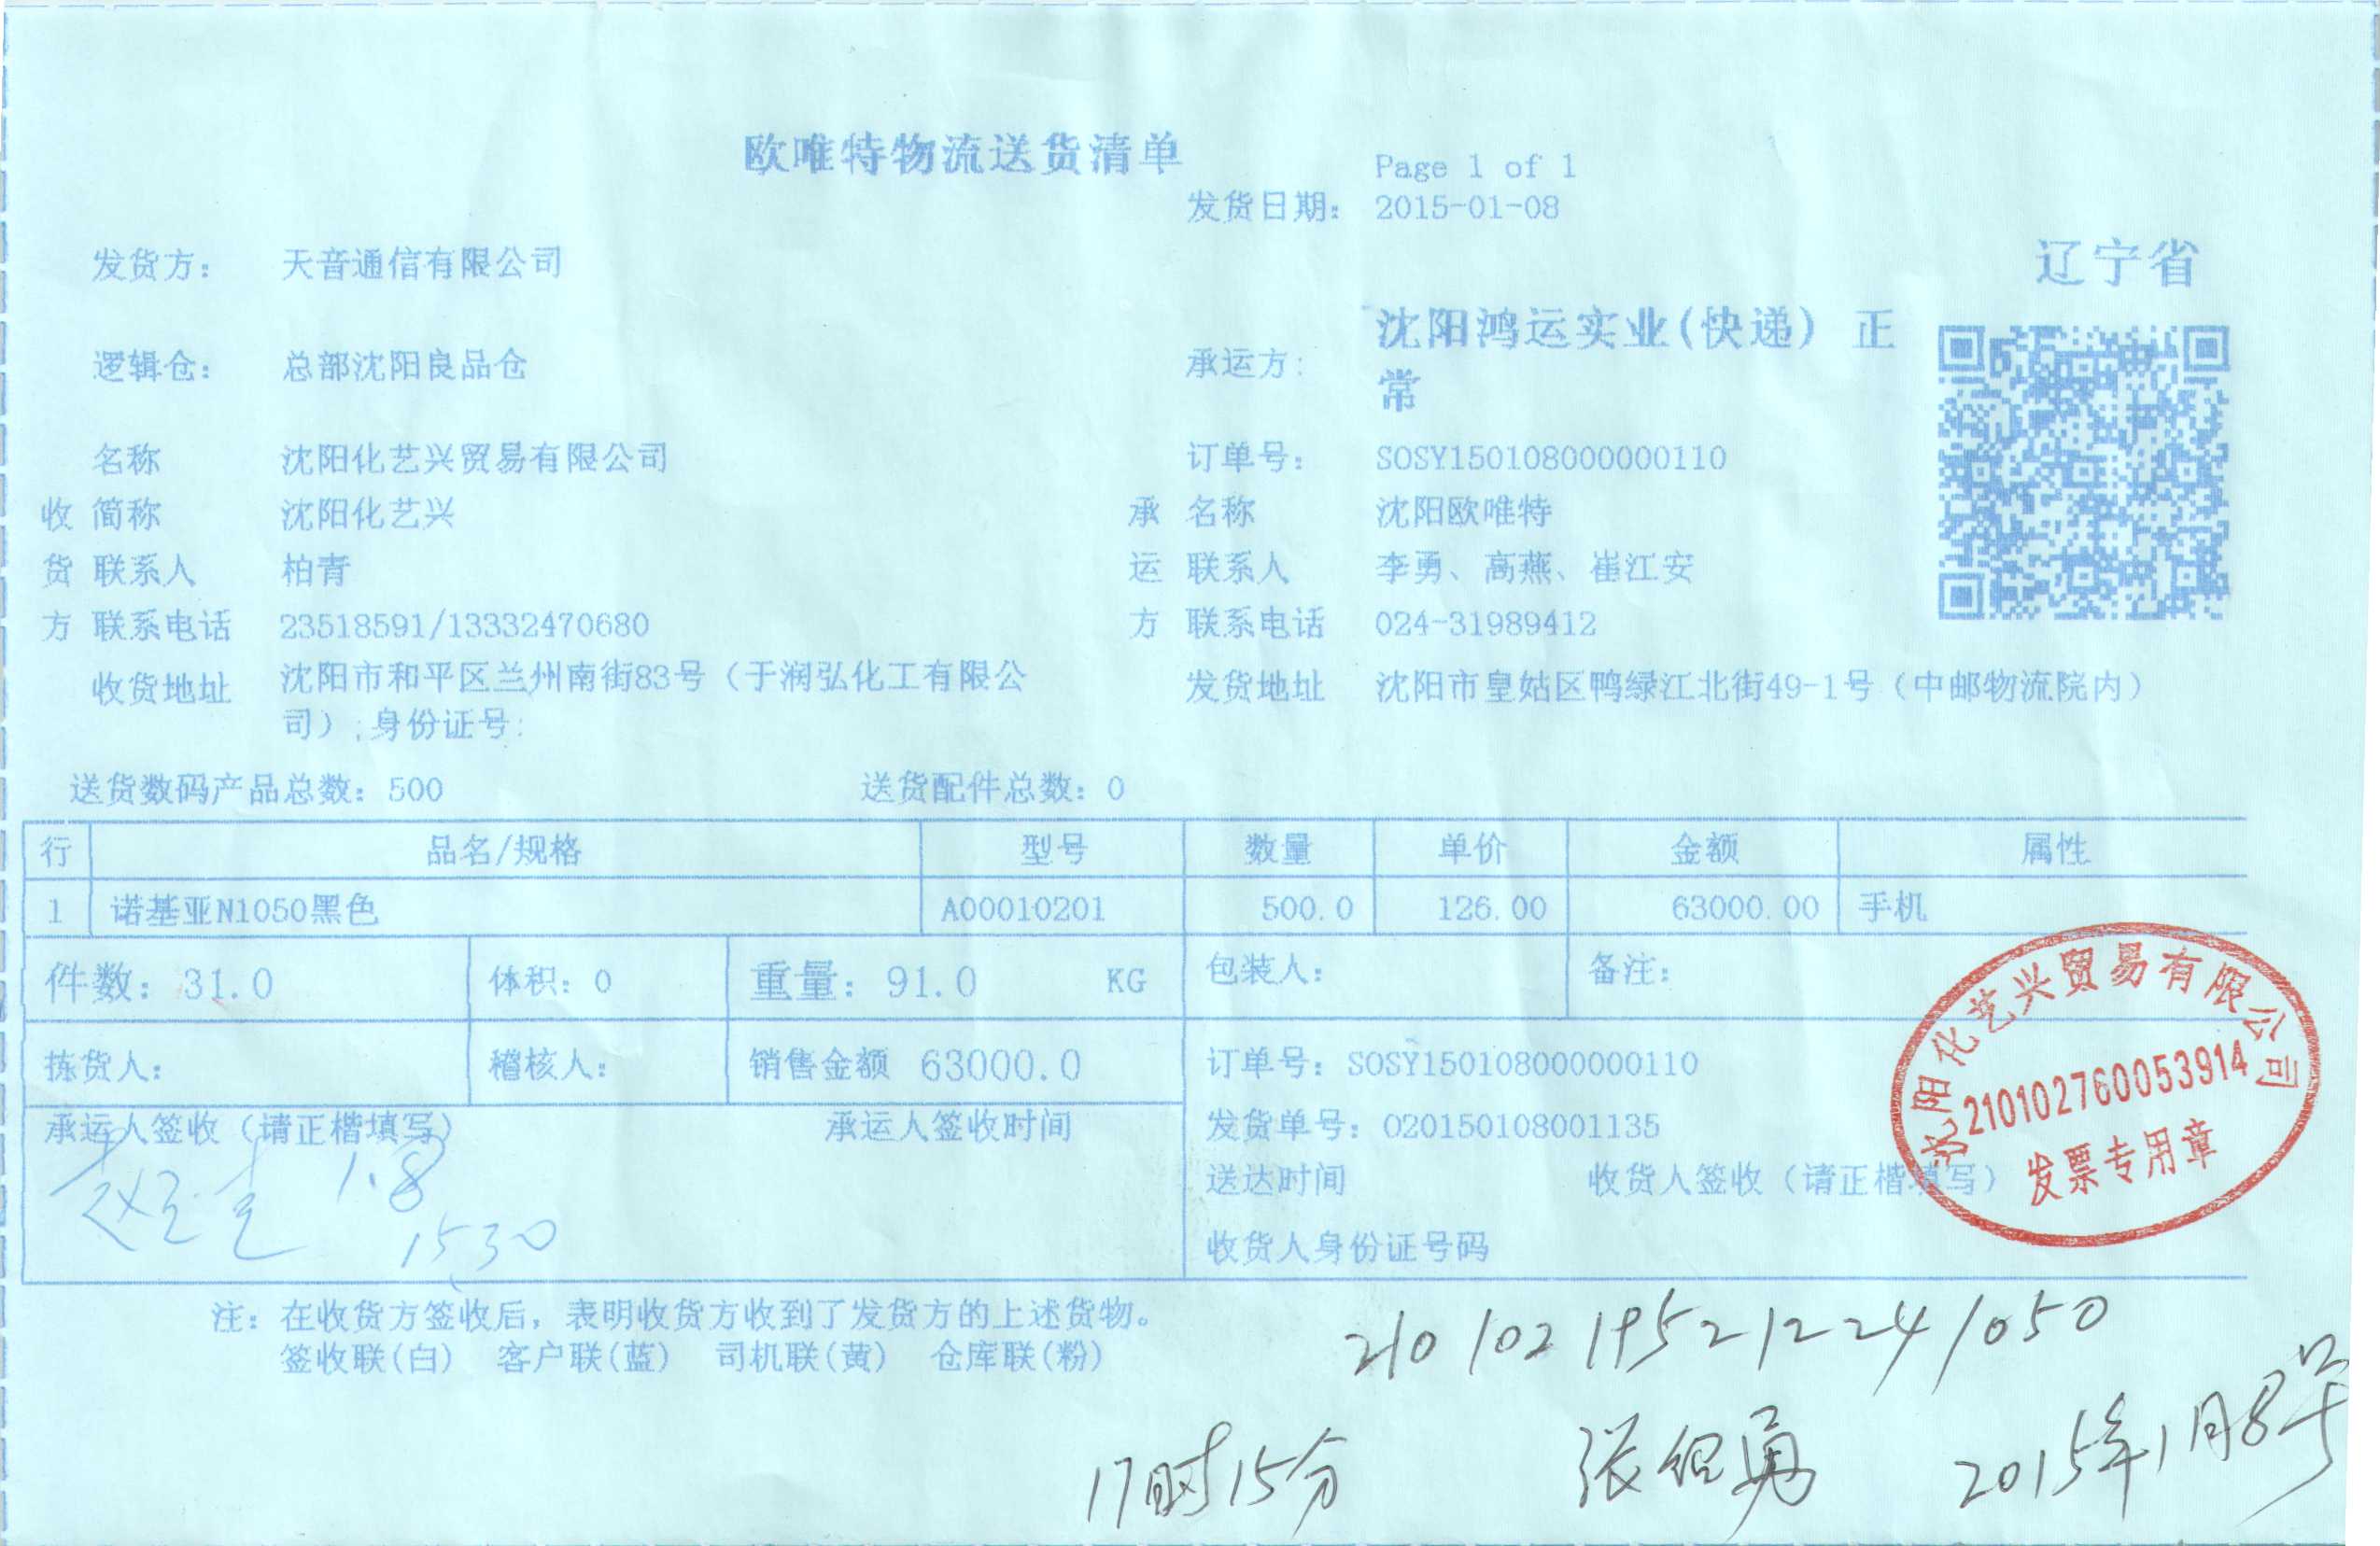 欧唯特物流送货清单
Page 1 of 1
发货日期: 2015-01-08
辽宁省
发货方: 天音通信有限公司
逻辑仓: 总部沈阳良品仓
承运方: 沈阳鸿运实业(快递) 正
常
名称 沈阳化艺兴贸易有限公司 订单号: SOSY150108000000110
收 简称 沈阳化艺兴 承 名称 沈阳欧唯特
货 联系人 柏青 运 联系人 李勇、高燕、崔江安
方 联系电话 23518591/13332470680 方 联系电话 024-31989412
收货地址 沈阳市和平区兰州南街83号（于润弘化工有限公
司）;身份证号:
发货地址 沈阳市皇姑区鸭绿江北街49-1号（中邮物流院内）
送货数码产品总数: 500 送货配件总数: 0
行 品名/规格 型号 数量 单价 金额 属性
1 诺基亚N1050黑色 A00010201 500.0 126.00 63000.00 手机
件数: 31.0 体积: 0 重量: 91.0 KG 包装人: 备注:
拣货人: 稽核人: 销售金额 63000.0 订单号: SOSY150108000000110
承运人签收（请正楷填写） 承运人签收时间 发货单号: 020150108001135
1.8
1530
送达时间 收货人签收（请正楷填写）
收货人身份证号码
沈阳化艺兴贸易有限公司
210102760053914
发票专用章
注: 在收货方签收后，表明收货方收到了发货方的上述货物。
签收联(白) 客户联(蓝) 司机联(黄) 仓库联(粉)
210102195212241050
17时15分 张绍勇 2015年1月8号